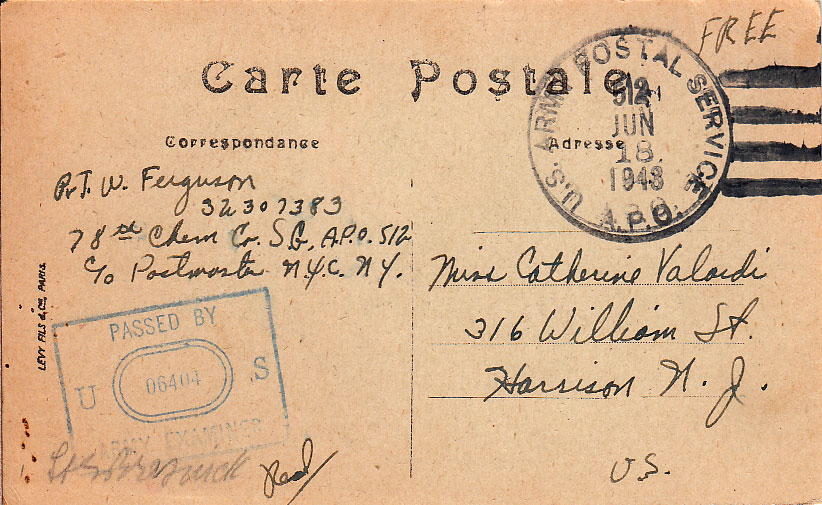 FREE
Carte Postale
U.S. ARMY POSTAL SERVICE
512
JUN
18
1943
A.P.O.
Correspondance
Adresse
Pvt. W. Ferguson
32307383
78th Chem Co. S.G., A.P.O. 512
c/o Postmaster N.Y.C. N.Y.
Miss Catherine Valardi
316 William St.
Harrison N. J.
U.S.
LEVY FILS & Cie, PARIS.
PASSED BY
U 06404 S
ARMY EXAMINER